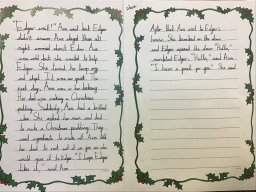 "Edgar wait!" Ava said but Edgar
didn't answer. Ava stayed there all
night worried about Edgar. Ava
was sad but she wanted to help
Edgar. She turned the lamp off
and slept. It was no good. The
next day, Ava was in her
Her dad was making a Christmas
pudding. Suddenly Ava had a brilliant
idea. She asked her mum and dad
to make a Christmas pudding. They
used ingredients to make it. Ava told
her dad to not eat it on so she
could give it to Edgar. "I hope Edgar
likes it," said Ava.
After that Ava went to Edgar's
house. She knocked on the door
and Edgar opened the door. "Hello,"
mumbled Edgar. "Hello," said Ava.
"I have a present for you." She said